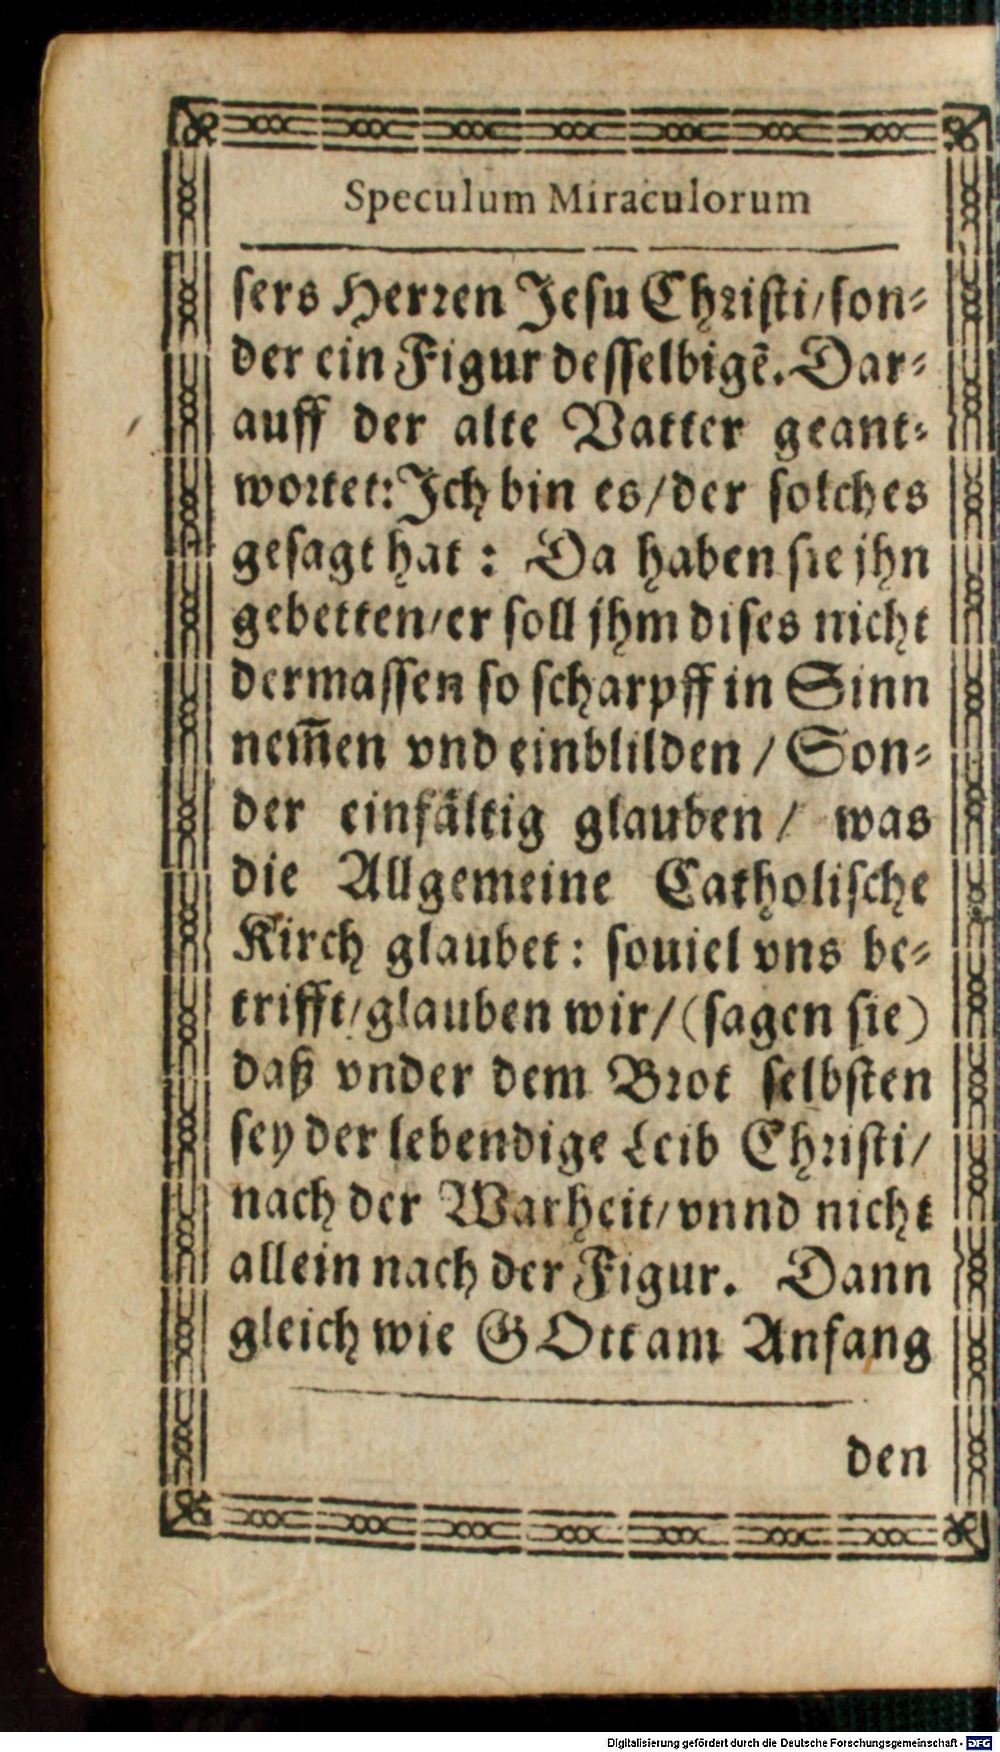 Speculum Miraculorum
sers Herren Jesu Christi/ son-
der ein Figur desselbigẽ. Dar-
auff der alte Vatter geant-
wortet: Jch bin es/ der solches
gesagt hat: Da haben sie jhn
gebetten/ er soll jhm dises nicht
dermassen so scharpff in Sinn
nem̃en vnd einblilden / Son-
der einfältig glauben / was
die Allgemeine Catholische
Kirch glaubet: souiel vns be-
trifft/ glauben wir/ (sagen sie)
daß vnder dem Brot selbsten
sey der lebendige Leib Christi/
nach der Warheit/ vnnd nicht
allein nach der Figur. Dann
gleich wie GOtt am Anfang
den
Digitalisierung gefördert durch die Deutsche Forschungsgemeinschaft - DFG